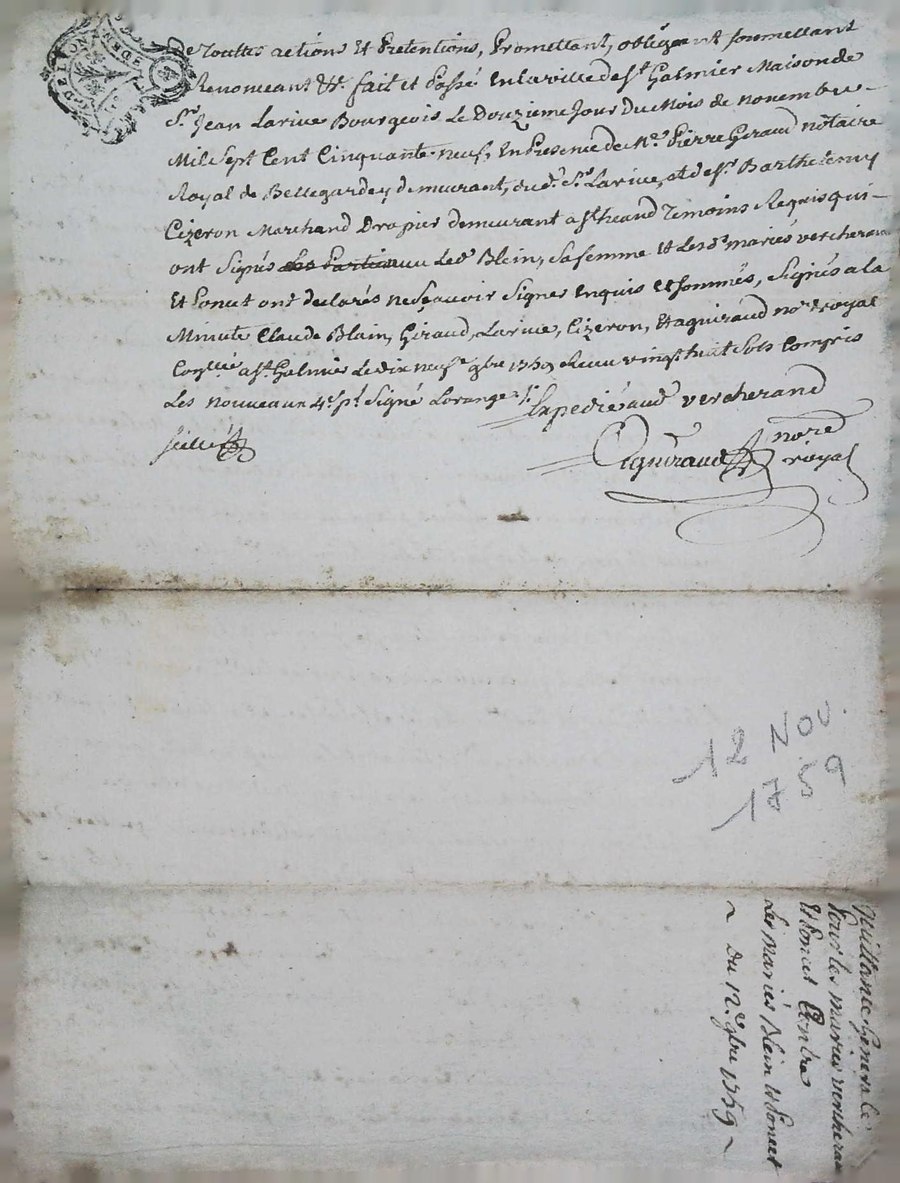 De touttes actions Et Pretentions, Promettant, obligeant soumettant
Renonceant &c. fait et Passé En la ville de St. Galmier Maison de
Sr. Jean Larive Bourgeois Le Douzieme Jour Du Mois de novembre
Mil Sept Cent Cinquante neuf, En Presence de Me. Pierre Giraud notaire
Royal de Bellegarde y demeurant, dud. Sr. Larive, et de Sr. Barthelemy
Cizeron Marchand Drapier demeurant a St. Temoins Requis qui
ont Signés Led. Blein, Sa femme Et Les d. mariés vercherand
Et Poncet ont declarés ne Sçavoir Signer Enquis et Sommés, Signés a la
Minute Claude Blain, Giraud, Larive, Cizeron, Et aguiraud nore. royal
Conllé a St. Galmier Le dix neuf 9bre 1759 Receu vingt huit Sols Compris
Les nouveaux 4s. pl. Signé Lorange
Expedié aud. vercherand
Scellé
aguiraud nore.
royal
12 NOV.
1759
Quittance generalle
Pour les mariés vercherand
Et Poncet Contre
Les mariés Blein Et Poncet
~ Du 12e. 9bre 1759 ~